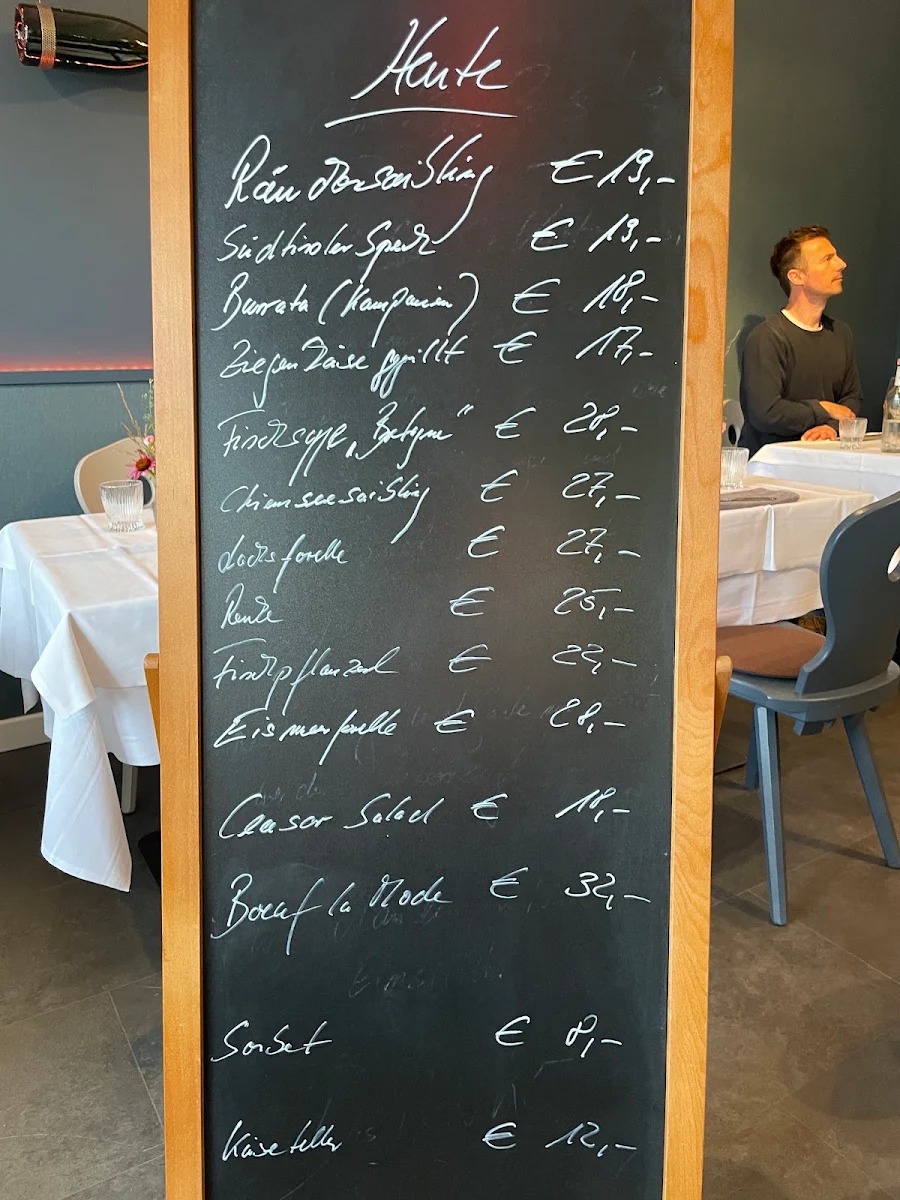 Heute
Räuchersaibling € 19,-
Südtiroler Speck € 19,-
Burrata (Kampanien) € 18,-
Ziegenkäse gegrillt € 17,-
Fischsuppe „Bretagne“ € 28,-
Chiemseesaibling € 27,-
Lachsforelle € 27,-
Renke € 25,-
Fischpflanzerl € 22,-
Eismeerforelle € 28,-
Ceasar Salad € 18,-
Boeuf la Mode € 32,-
Sorbet € 8,-
Käseteller € 12,-